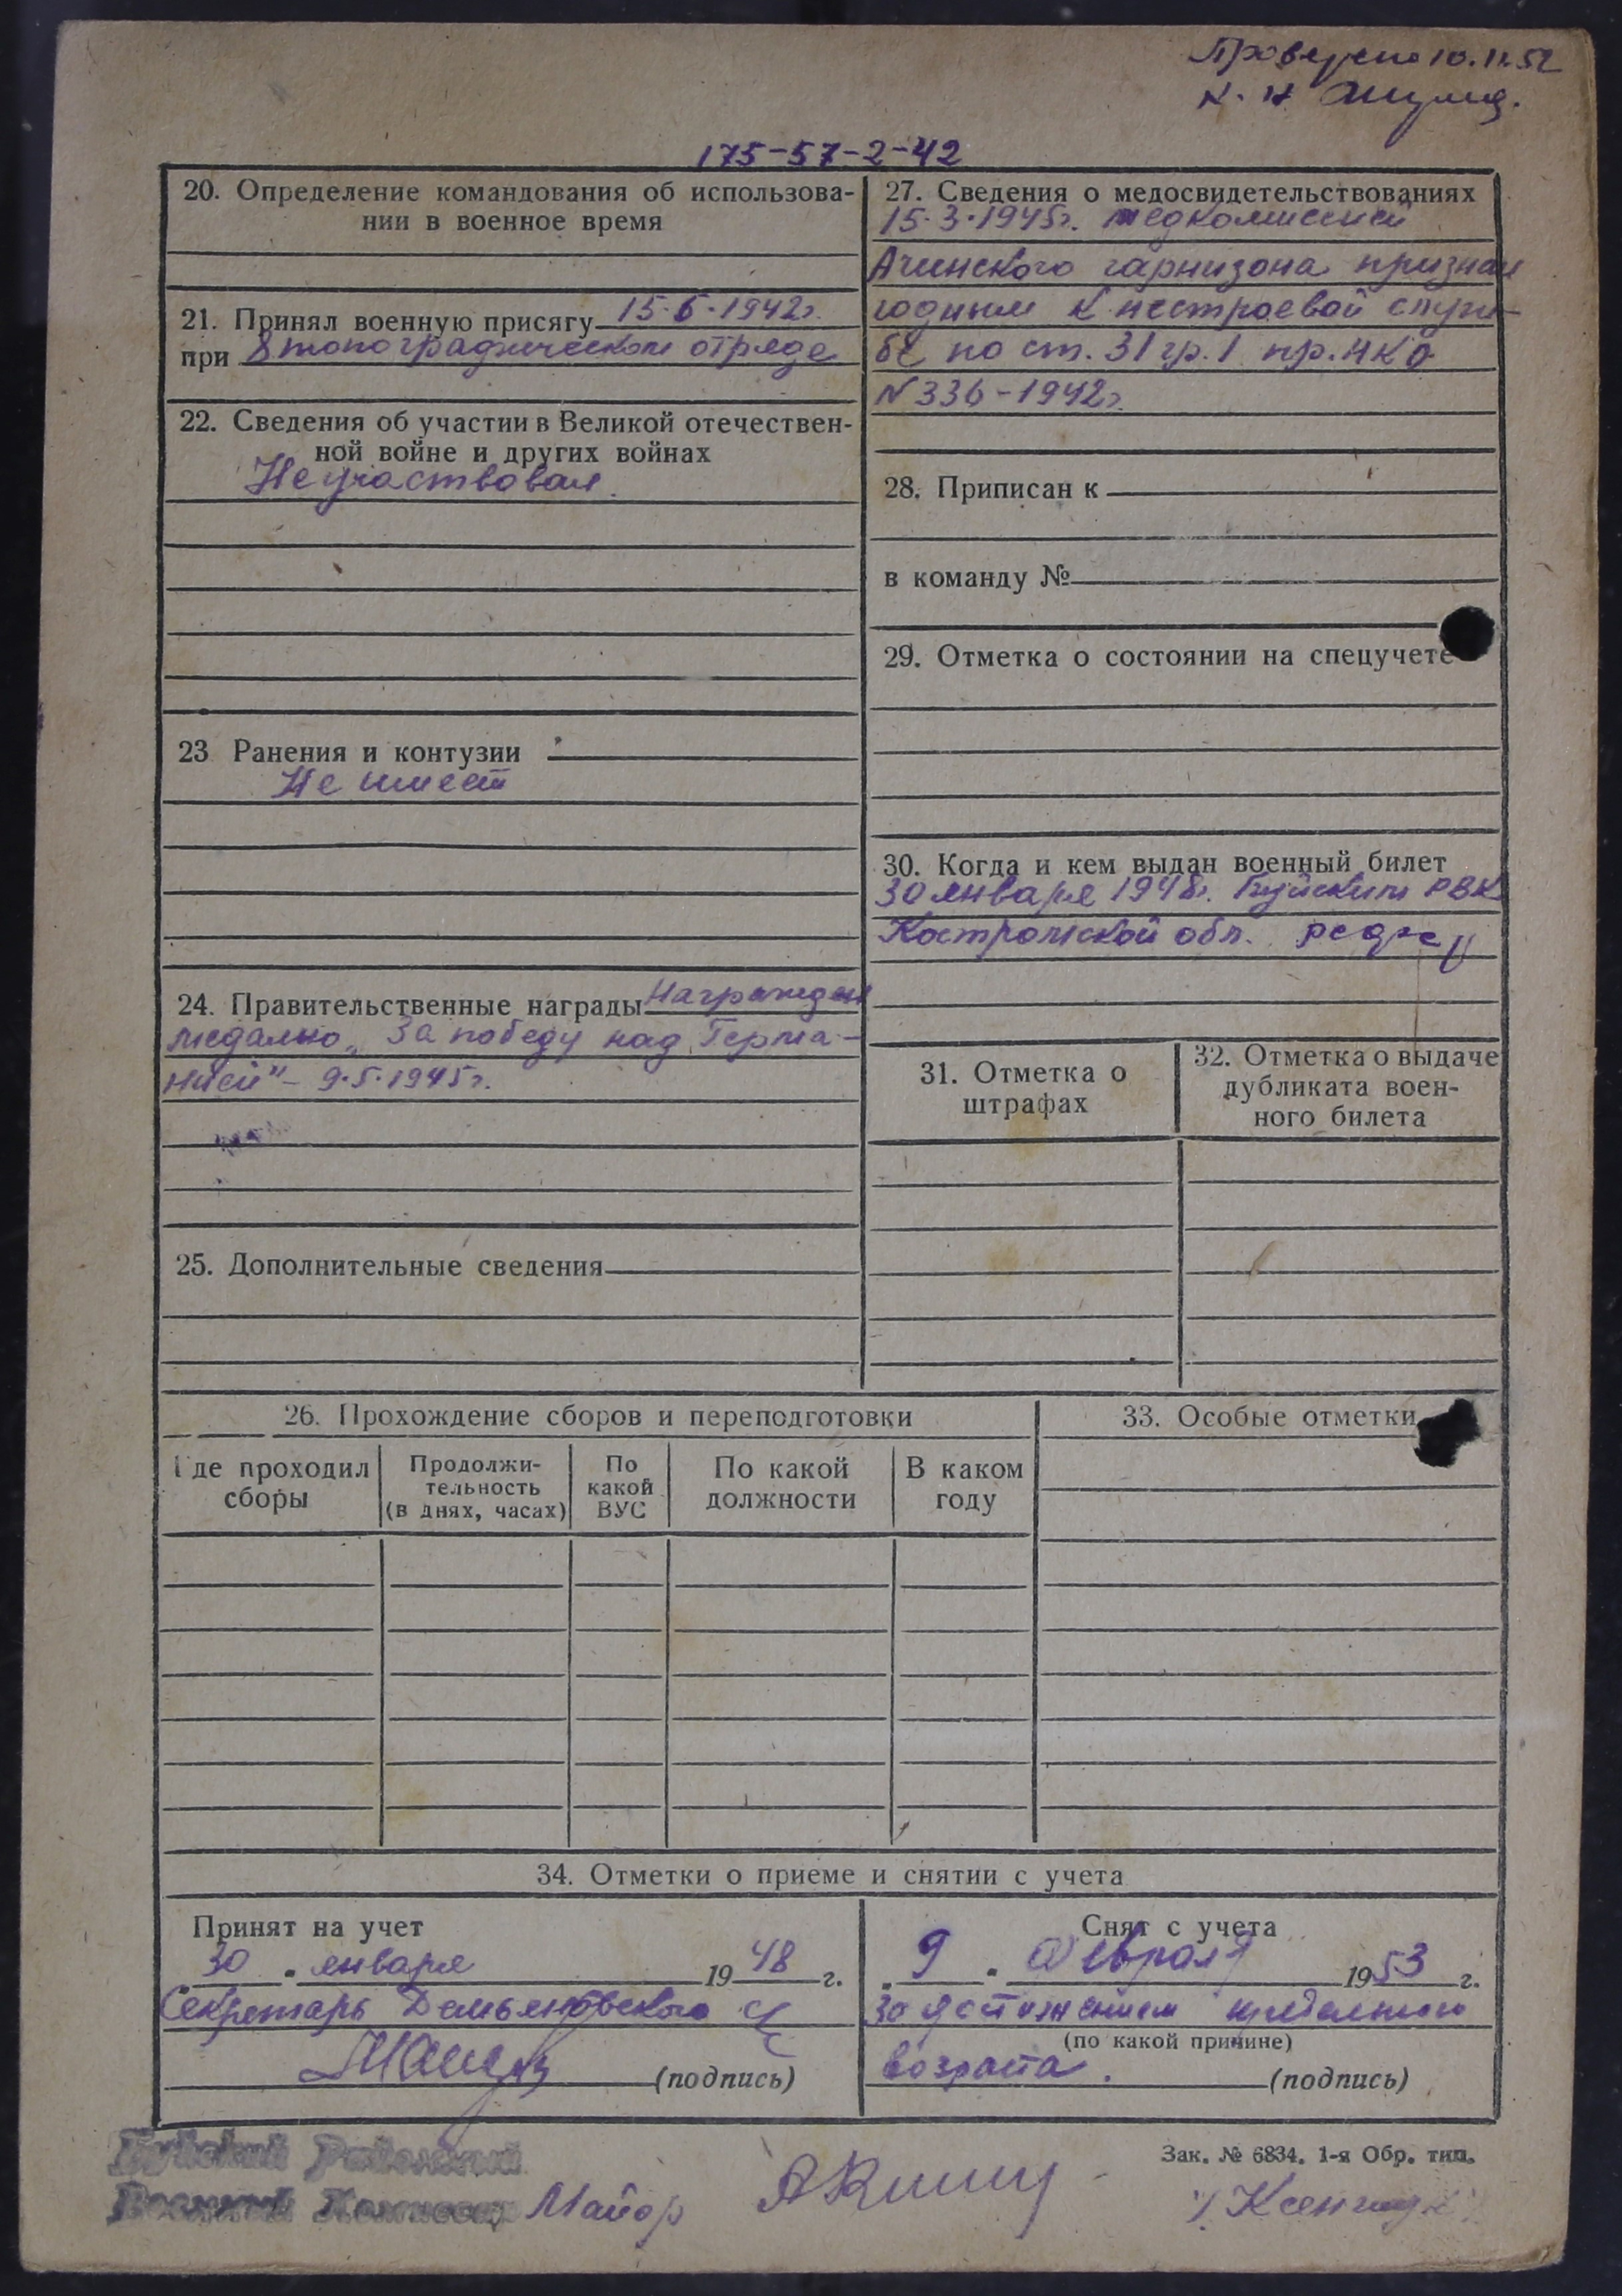 Проверено 10.11.52
175-57-2-42
20. Определение командования об использова-
нии в военное время
21. Принял военную присягу 15.6.1942г.
при 8 топографическом отряде
22. Сведения об участии в Великой отечествен-
ной войне и других войнах
Не участвовал.
23 Ранения и контузии
Не имеет
24. Правительственные награды Награжден
медалью „За победу над Герма-
нией" - 9.5.1945г.
25. Дополнительные сведения
27. Сведения о медосвидетельствованиях
15.3.1945г. медкомиссией
Ачинского гарнизона признан
годным к нестроевой служ-
бе по ст. 31 гр. 1 пр. НКО
N 336-1942г.
28. Приписан к
в команду №
29. Отметка о состоянии на спецучете
30. Когда и кем выдан военный билет
30 января 1948г. Буйским РВК
Костромской обл.
31. Отметка о
штрафах
32. Отметка о выдаче
дубликата воен-
ного билета
26. Прохождение сборов и переподготовки
Где проходил
сборы
Продолжи-
тельность
(в днях, часах)
По
какой
ВУС
По какой
должности
В каком
году
33. Особые отметки
34. Отметки о приеме и снятии с учета
Принят на учет
30 января 1948 г.
Секретарь Демьяновского
(подпись)
Снят с учета
9 февраля 1953 г.
за достижением предельного
(по какой причине)
возраста.
(подпись)
Буйский Районный
Военный Комиссар Майор
Зак. № 6834. 1-я Обр. тип.